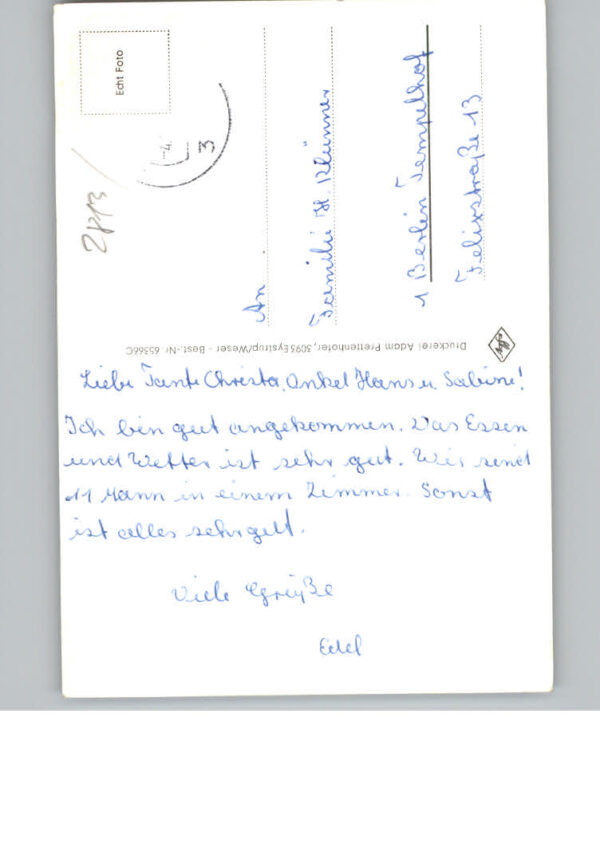 Liebe Tante Christa, Onkel Hans u. Sabine!
Ich bin gut angekommen. Das Essen
und Wetter ist sehr gut. Wir sind
11 Mann in einem Zimmer. Sonst
ist alles sehr gut.
Viele Grüße
Edel
Echt Foto
3
2813
An
Familie H. Klünner
1 Berlin Tempelhof
Felixstraße 13
Druckerei Adam Prettenhofer, 3095 Eystrup/Weser - Best.-Nr. 65366C